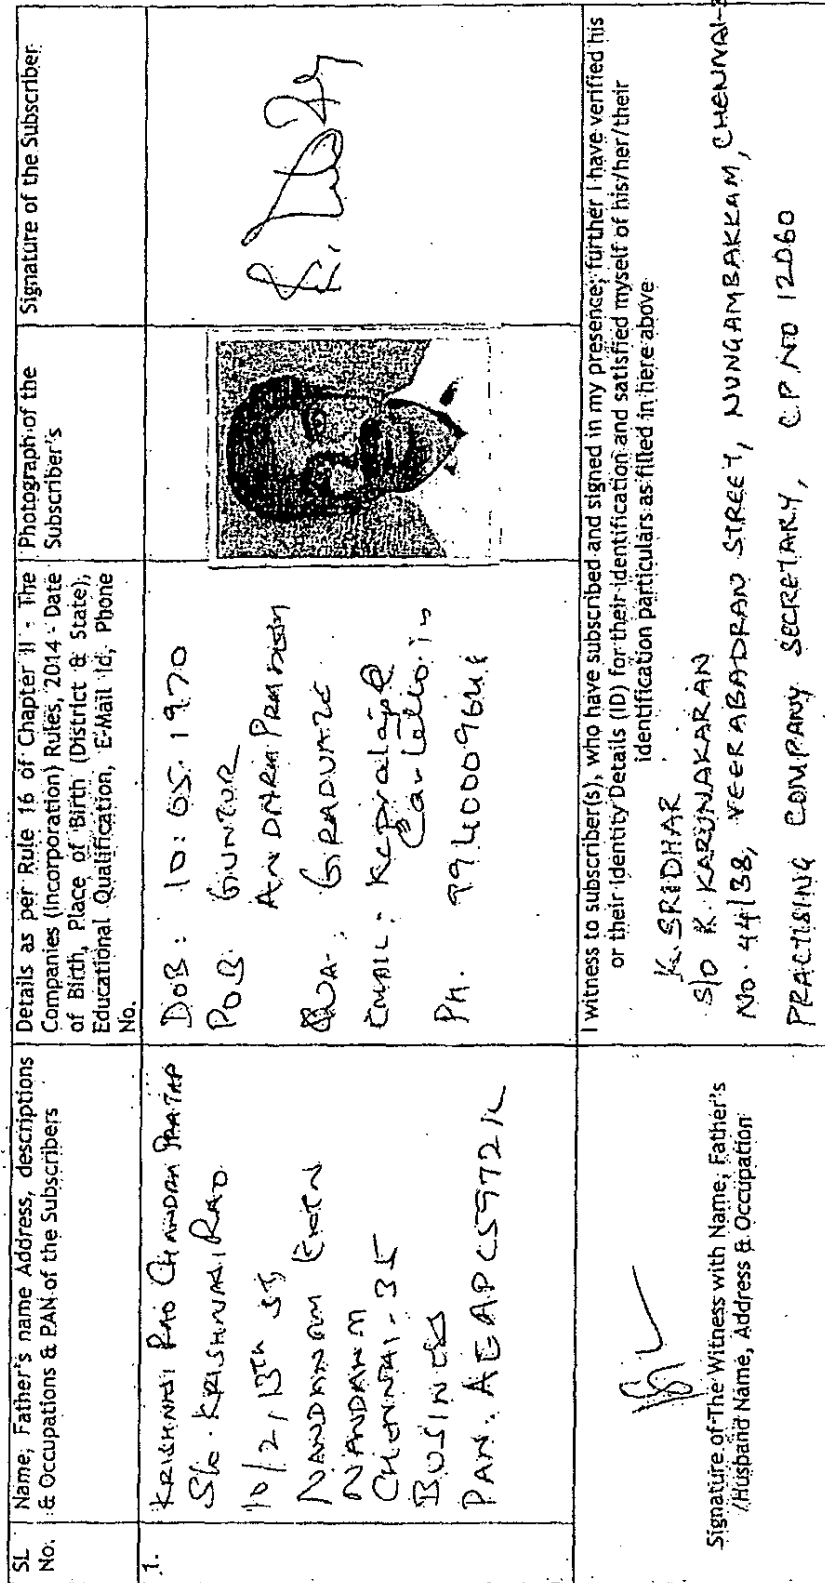 SL No.
Name, Father's name Address, descriptions
& Occupations & PAN of the Subscribers
Details as per Rule 16 of Chapter II - The
Companies (Incorporation) Rules, 2014 - Date
of Birth, Place of Birth (District & State),
Educational Qualification, E-Mail Id, Phone
No.
Photograph of the
Subscriber's
Signature of the Subscriber
1.
KRISHNAJI RAO CHANDRA PRATAP
S/o. KRISHNAJI RAO
10/2, 13th St
NANDANAM EXTN
NANDANAM
CHENNAI-35
BUSINESS
PAN: AEAPC5972K
DOB: 10:05:1970
P.O.B. GUNTUR
ANDHRA PRADESH
QUA-: GRADUATE
EMAIL:
PH. 9940009648
Signature of The Witness with Name, Father's
/Husband Name, Address & Occupation
I witness to subscriber(s), who have subscribed and signed in my presence; further I have verified his
or their Identity Details (ID) for their identification and satisfied myself of his/her/their
identification particulars as filled in here above
K. SRIDHAR
S/O K. KARUNAKARAN
NO. 44/38, VEERABADRAN STREET, NUNGAMBAKKAM, CHENNAI-
PRACTISING COMPANY SECRETARY, C.P. NO 12060